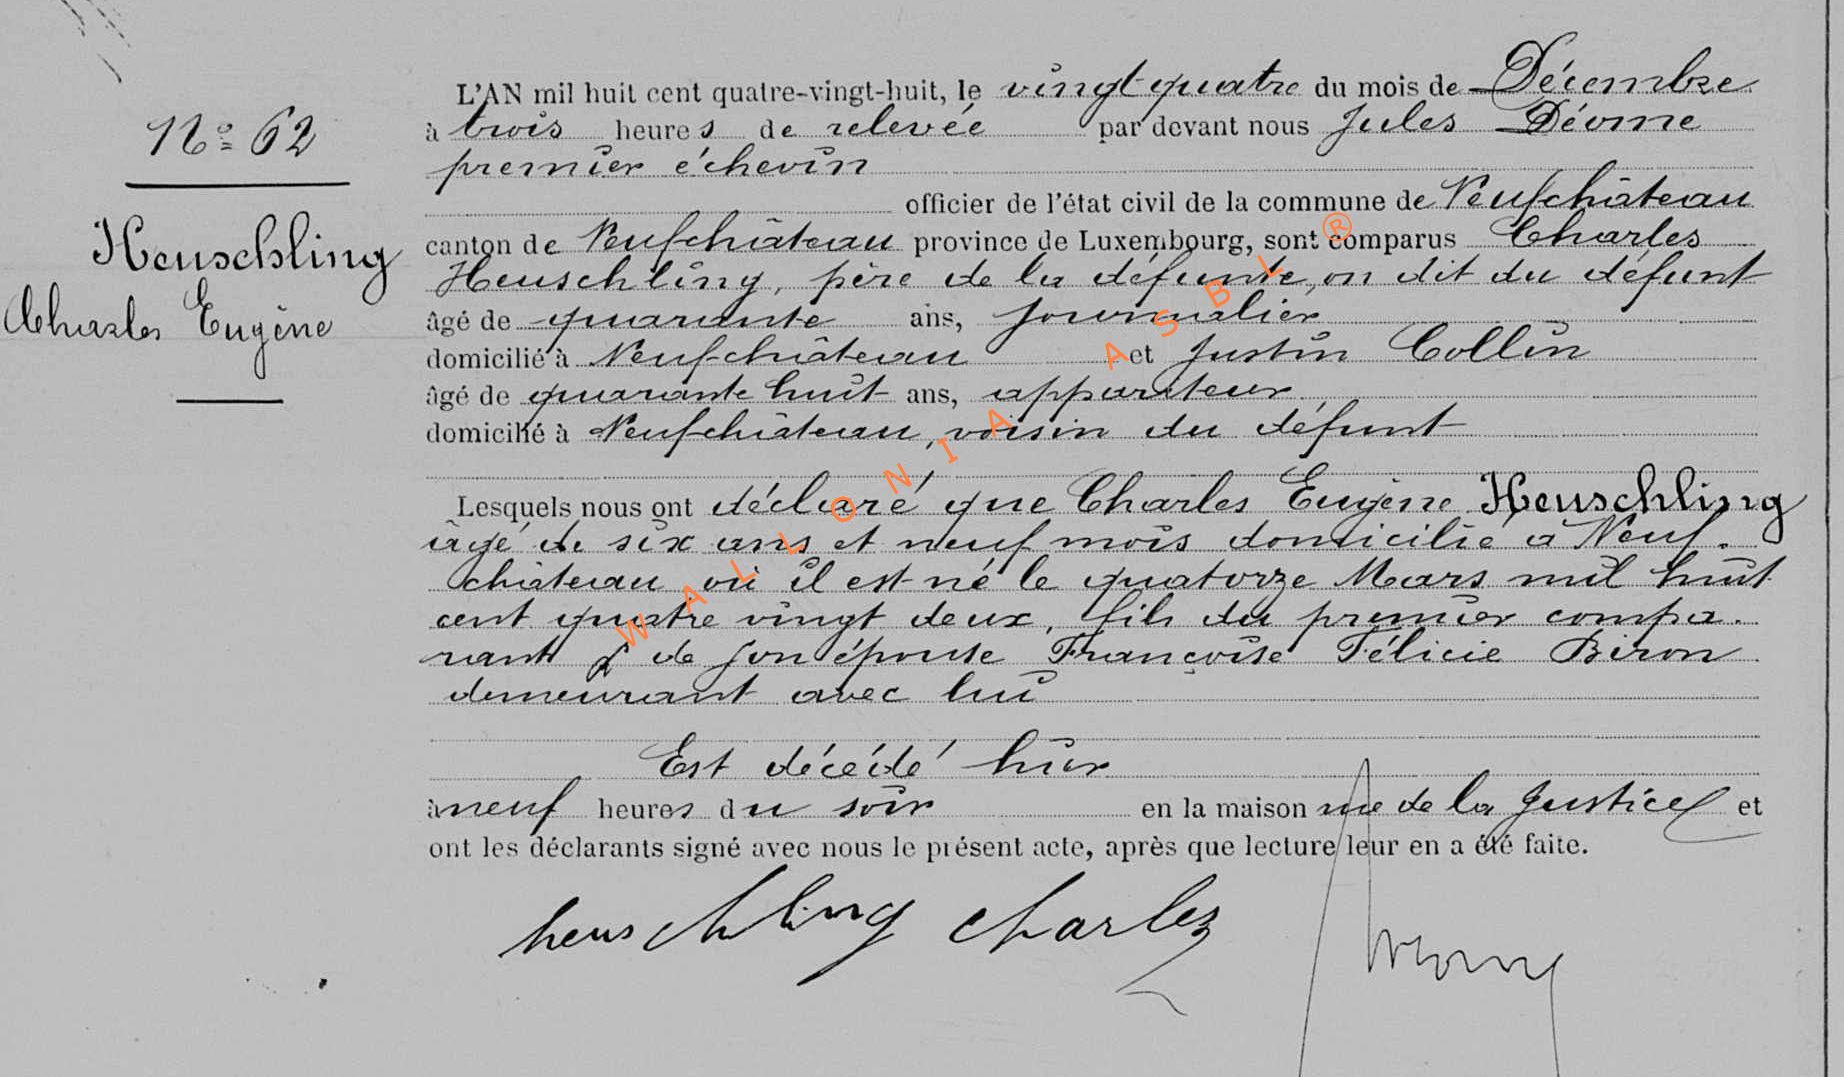 N° 62
Heuschling
Charles Eugène
L'AN mil huit cent quatre-vingt-huit, le vingt quatre du mois de Décembre
à trois heures de relevée par devant nous Jules Déome
premier échevin
officier de l'état civil de la commune de Neufchâteau
canton de Neufchâteau province de Luxembourg, sont comparus Charles
Heuschling, père de la défunte, on dit du défunt
âgé de quarante ans, journalier
domicilié à Neufchâteau et Justin Collin
âgé de quarante huit ans, appariteur
domicilié à Neufchâteau, voisin du défunt
Lesquels nous ont déclaré que Charles Eugène Heuschling
âgé de six ans et neuf mois domicilié à Neuf.
château où il est né le quatorze Mars mil huit
cent quatre vingt deux, fils du premier compa.
rant & de son épouse Françoise Félicie Biron
demeurant avec lui
Est décédé hier
à neuf heures du soir en la maison rue de la Justice et
ont les déclarants signé avec nous le présent acte, après que lecture leur en a été faite.
heuschling charles
WALLONIA ASBL ®